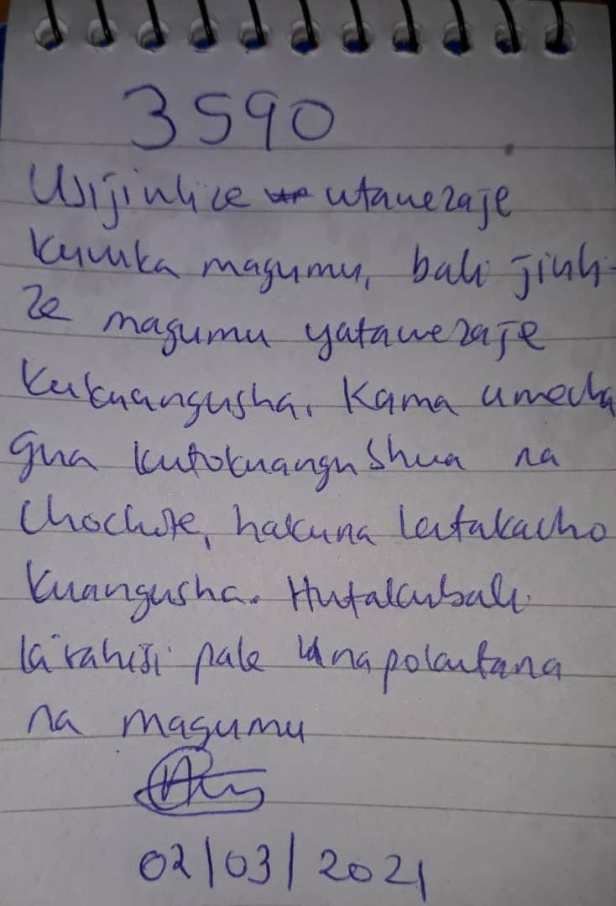 3590
Usijiulize utawezaje
kuvuka magumu, bali jiuli-
ze magumu yatawezaje
kukuangusha. Kama umecha
gua kutokuangushwa na
chochote, hakuna kitakacho
kuangusha. Hutakubali
kirahisi pale unapokutana
na magumu
02/03/2021